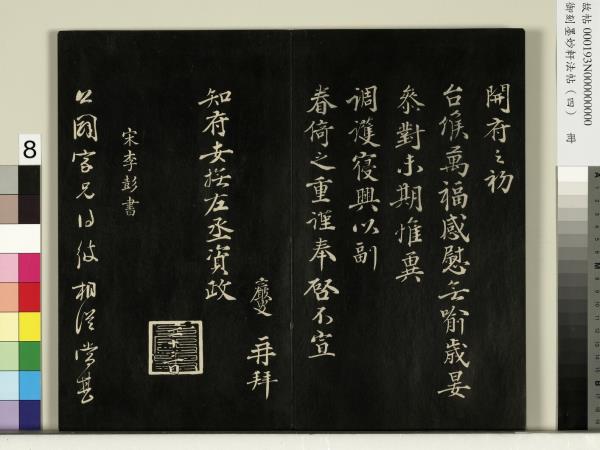 開府之初
台候萬福感慰無喻歲晏
參對未期惟冀
調護寢興以副
眷倚之重謹奉啓不宣
再拜
知府安撫左丞資政
宋李彭書
公國家兄得彼相從
故帖 000193N000000000
御刻墨妙軒法帖(四) 冊
8